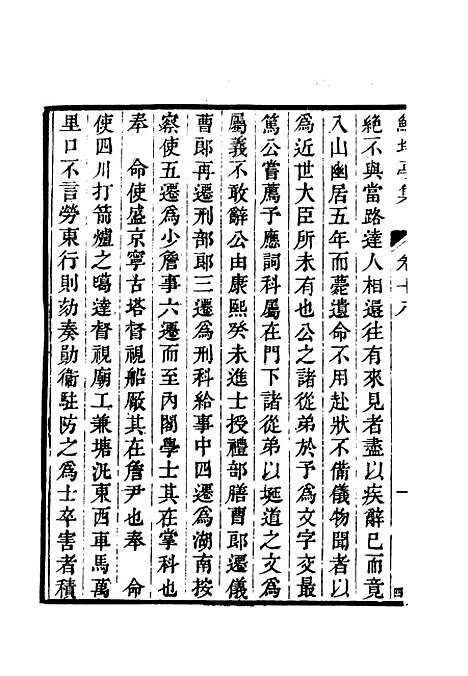 鮚埼亭集 卷十八 四
絶不與當路達人相還往有來見者盡以疾辭已而竟
入山幽居五年而薨遺命不用赴狀不備儀物聞者以
爲近世大臣所未有也公之諸從弟於予爲文字交最
篤公嘗薦予應詞科屬在門下諸從弟以埏道之文爲
屬義不敢辭公由康熙癸未進士授禮部膳曹郎遷儀
曹郎再遷刑部郎三遷爲刑科給事中四遷爲湖南按
察使五遷爲少詹事六遷而至內閣學士其在掌科也
奉 命使盛京寧古塔督視船厰其在詹尹也奉 命
使四川打箭爐之噶達督視廟工兼塘汛東西車馬萬
里口不言勞東行則劾奏勛衞駐防之爲士卒害者積